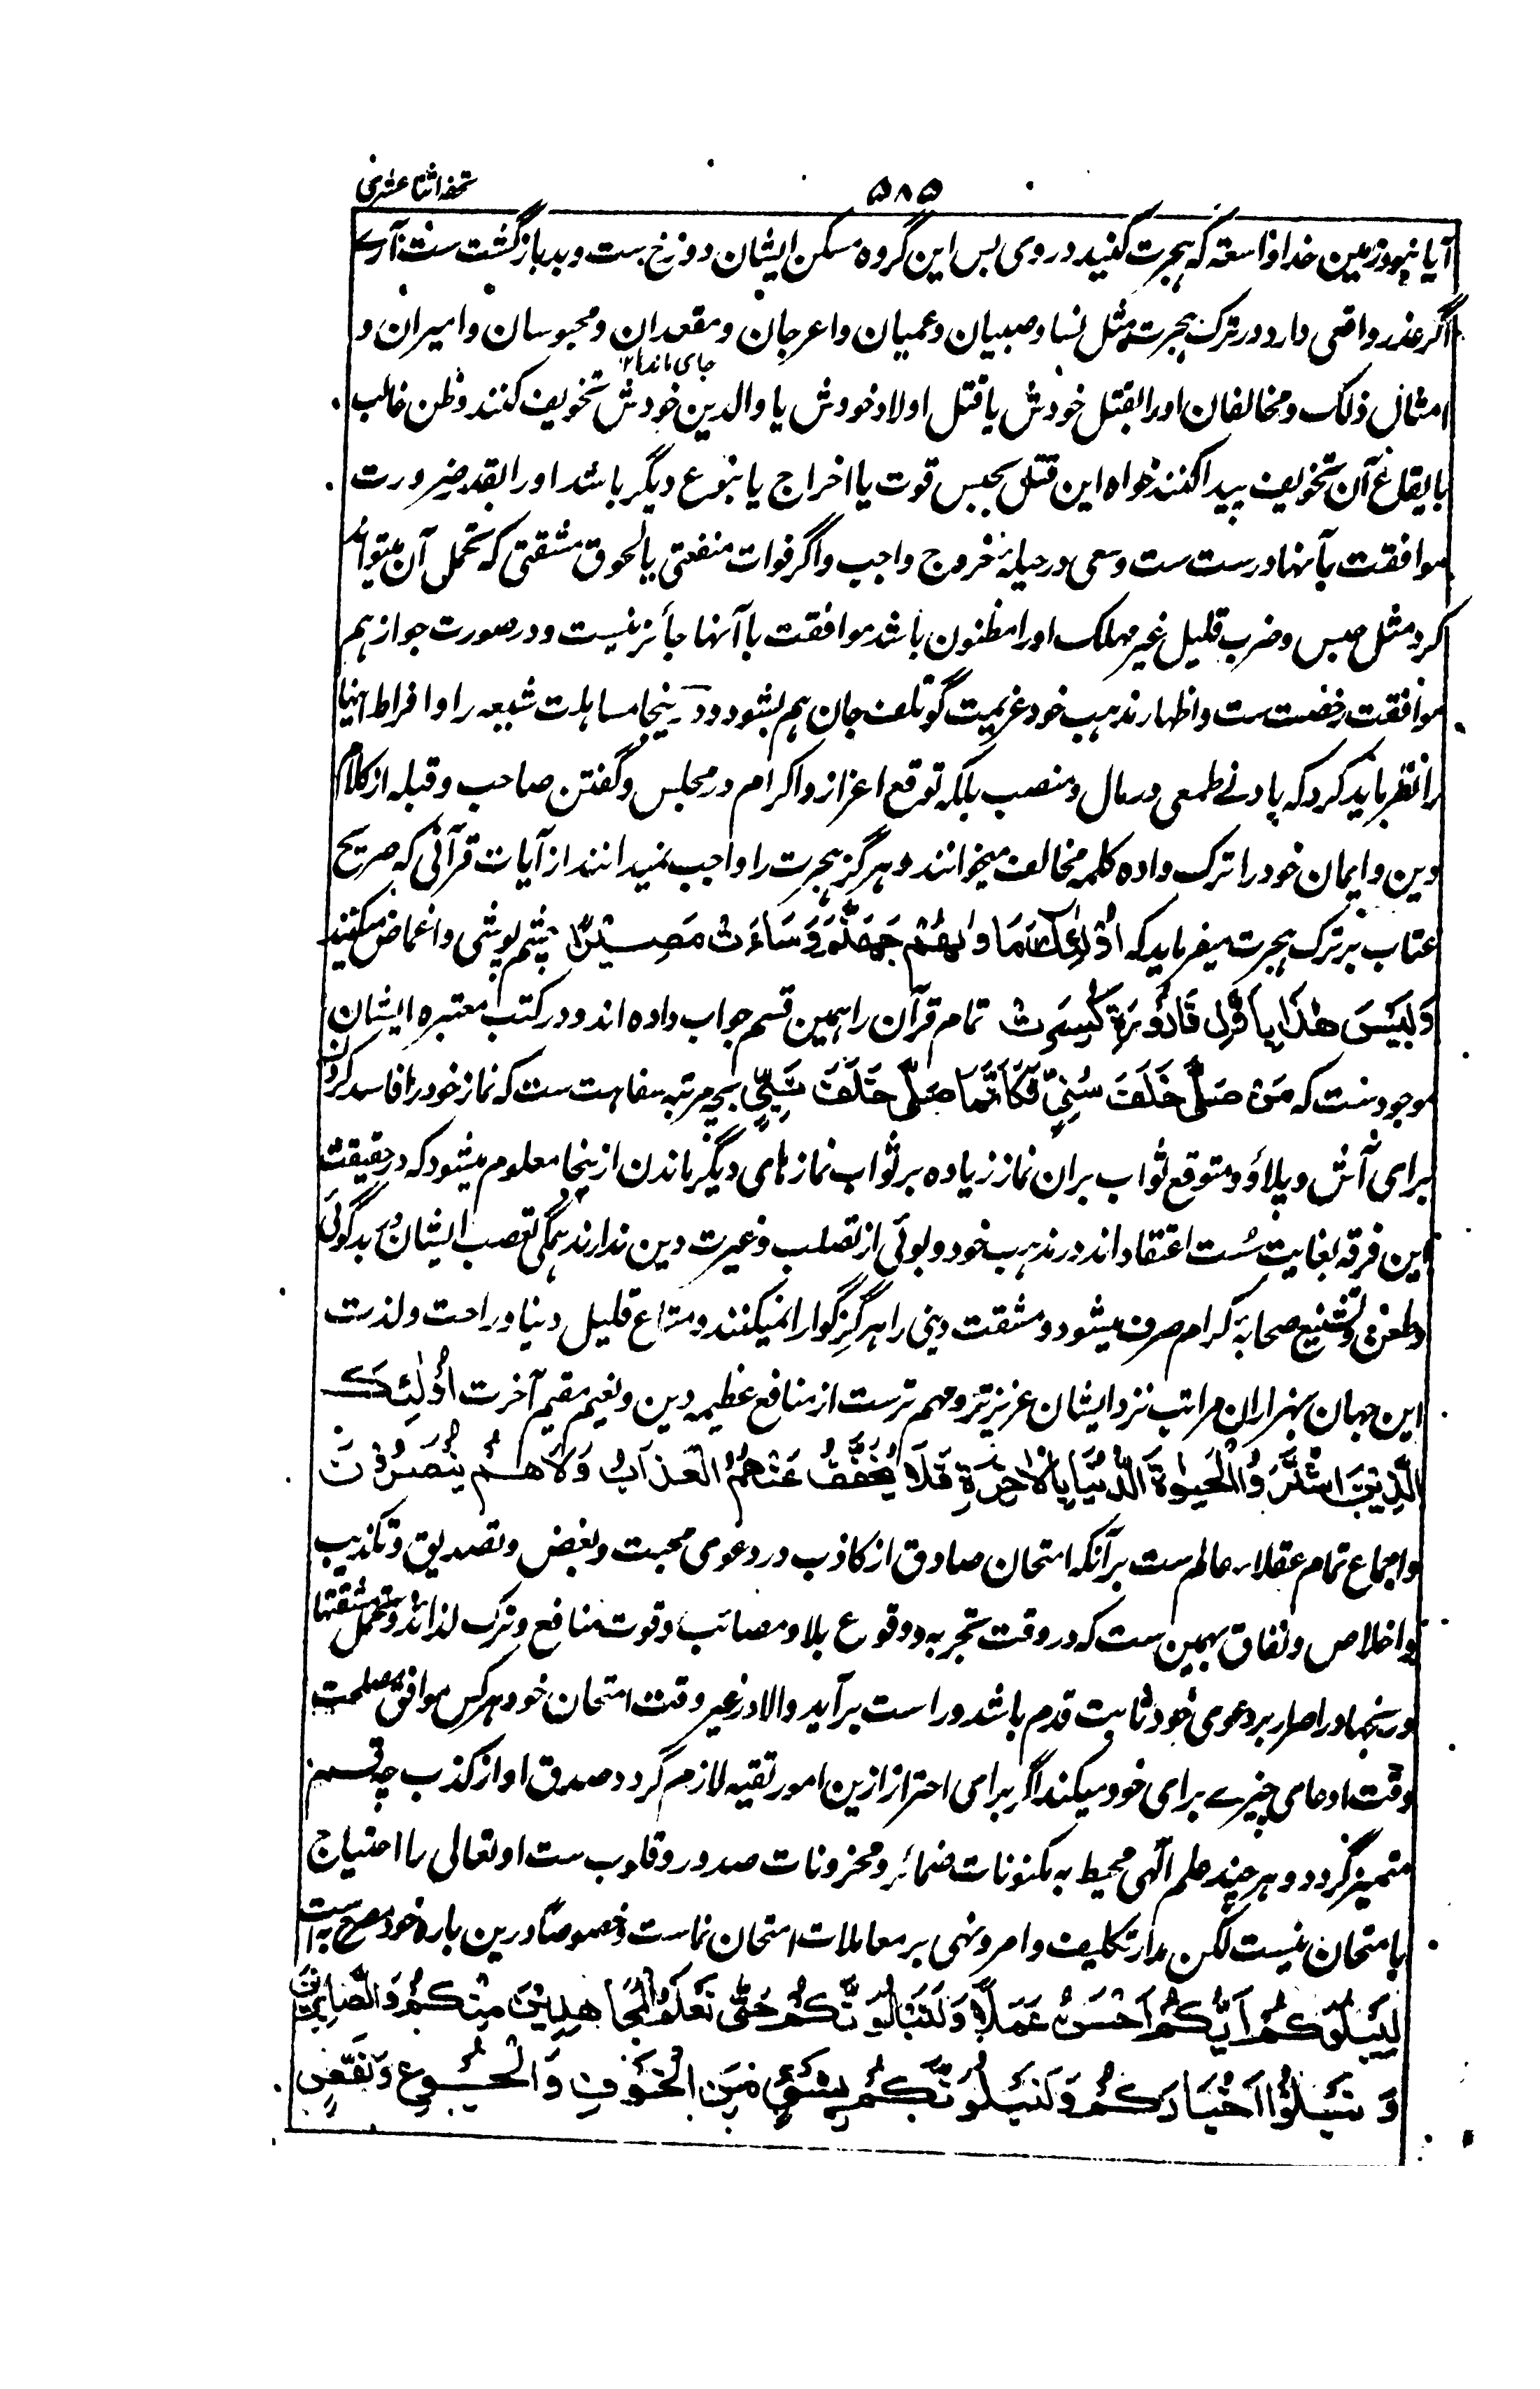 تحفه اثنا عشری
۵۸۵
آیا نبود زمین خدا واسعه که هجرت کنید در وی پس این گروه مسکن ایشان دوزخ ست و بد بازگشت ست آرے
اگر عذر واقعی دارد در ترک هجرت مثل نسا و صبیان و عمیان و اعرجان و مقعدان و محبوسان و اسیران و
امثال ذلک و مخالفان او را بقتل خودش یا قتل اولاد خودش یا والدین خودش تخویف کنند و ظن غالب
بایقاع آن تخویف پیدا کنند خواه این قتل بحبس قوت یا اخراج یا بنوع دیگر باشد او را بقدر ضرورت
موافقت بآنها درست ست و سعی در حیلهٔ خروج واجب و اگر فوات منفعتی یا لحوق مشقتی که تحمل آن میتواند
کرد مثل حبس و ضرب قلیل غیر مهلک او را مظنون باشد موافقت با آنها جائز نیست و در صورت جواز هم
موافقت رخصت ست و اظهار مذهب خود عزیمت گو تلف جان هم بشود و درینجا مساهلت شیعه را و افراط اینها
را نظر باید کرد که بادنے طمعی در مال و منصب بلکه توقع اعزاز و اکرام در مجلس و گفتن صاحب و قبله از کلام
دین و ایمان خود را ترک داده کلمه مخالف میخوانند و هرگز هجرت را واجب نمیدانند از آیات قرآنی که صریح
عتاب بر ترک هجرت میفرماید که اُولٰئِکَ مَاْوٰىهُمْ جَهَنَّمُ وَسَاءَتْ مَصِیْرًا چشم پوشی و اغماض میکنند
وَلَیْسَ هٰذَا بِاَوَّلِ قَارُوْرَةٍ کُسِرَتْ تمام قرآن را همین قسم جواب داده اند و در کتب معتبره ایشان
موجود ست که مَنْ صَلّٰی خَلْفَ سُنِیٍّ فَکَاَنَّمَا صَلّٰی خَلْفَ نَبِیٍّ بچه مرتبه سفاهت ست که نماز خود را فاسد کردن
برای آش و پلاؤ و متوقع ثواب بران نماز زیاده بر ثواب نمازهای دیگر ماندن ازینجا معلوم میشود که در حقیقت
این فرقه بغایت سُست اعتقاد اند در مذهب خود و بوئی از تصلب و غیرت دین ندارند همگی تعصب ایشان در بدگوئی
و طعن و تشنیع صحابهٔ کرام صرف میشود و مشقت دینی را هرگز گوارا نمیکنند و متاع قلیل دنیا و راحت و لذت
این جهان بهزاران مراتب نزد ایشان عزیزتر و مهم ترست از منافع عظیمه دین و نعیم مقیم آخرت اُولٰئِکَ
الَّذِیْنَ اشْتَرَوُا الْحَیٰوةَ الدُّنْیَا بِالْاٰخِرَةِ فَلَا یُخَفَّفُ عَنْهُمُ الْعَذَابُ وَلَا هُمْ یُنْصَرُوْنَ
و اجماع تمام عقلاء عالم ست بر آنکه امتحان صادق از کاذب در دعوی محبت و بغض و تصدیق و تکذیب
و اخلاص و نفاق بهمین ست که در وقت تجربه و وقوع بلا و مصائب و فوت منافع و ترک لذائذ و تحمل مشقتها
و رنجها در اصرار بر دعوی خود ثابت قدم باشد و راست بر آید و الا در غیر وقت امتحان خود هر کس موافق مصلحت
وقت ادعای چیزے برای خود میکند اگر برای احتراز ازین امور تقیه لازم گردد صدق او از کذب چه قسم
متمیز گردد و هر چند علم الٰهی محیط به مکنونات ضمائر و مخزونات صدور و قلوب ست او تعالی را احتیاج
بامتحان نیست لکن مدار تکلیف و امر و نهی بر معاملات امتحان نماست خصوصًا درین باره خود مصرح به است
لِیَبْلُوَکُمْ اَیُّکُمْ اَحْسَنُ عَمَلًا وَلَنَبْلُوَنَّکُمْ حَتّٰی نَعْلَمَ الْمُجَاهِدِیْنَ مِنْکُمْ وَالصَّابِرِیْنَ
وَ نَبْلُوَا اَخْبَارَکُمْ وَلَنَبْلُوَنَّکُمْ بِشَیْءٍ مِنَ الْخَوْفِ وَالْجُوْعِ وَنَقْصٍ